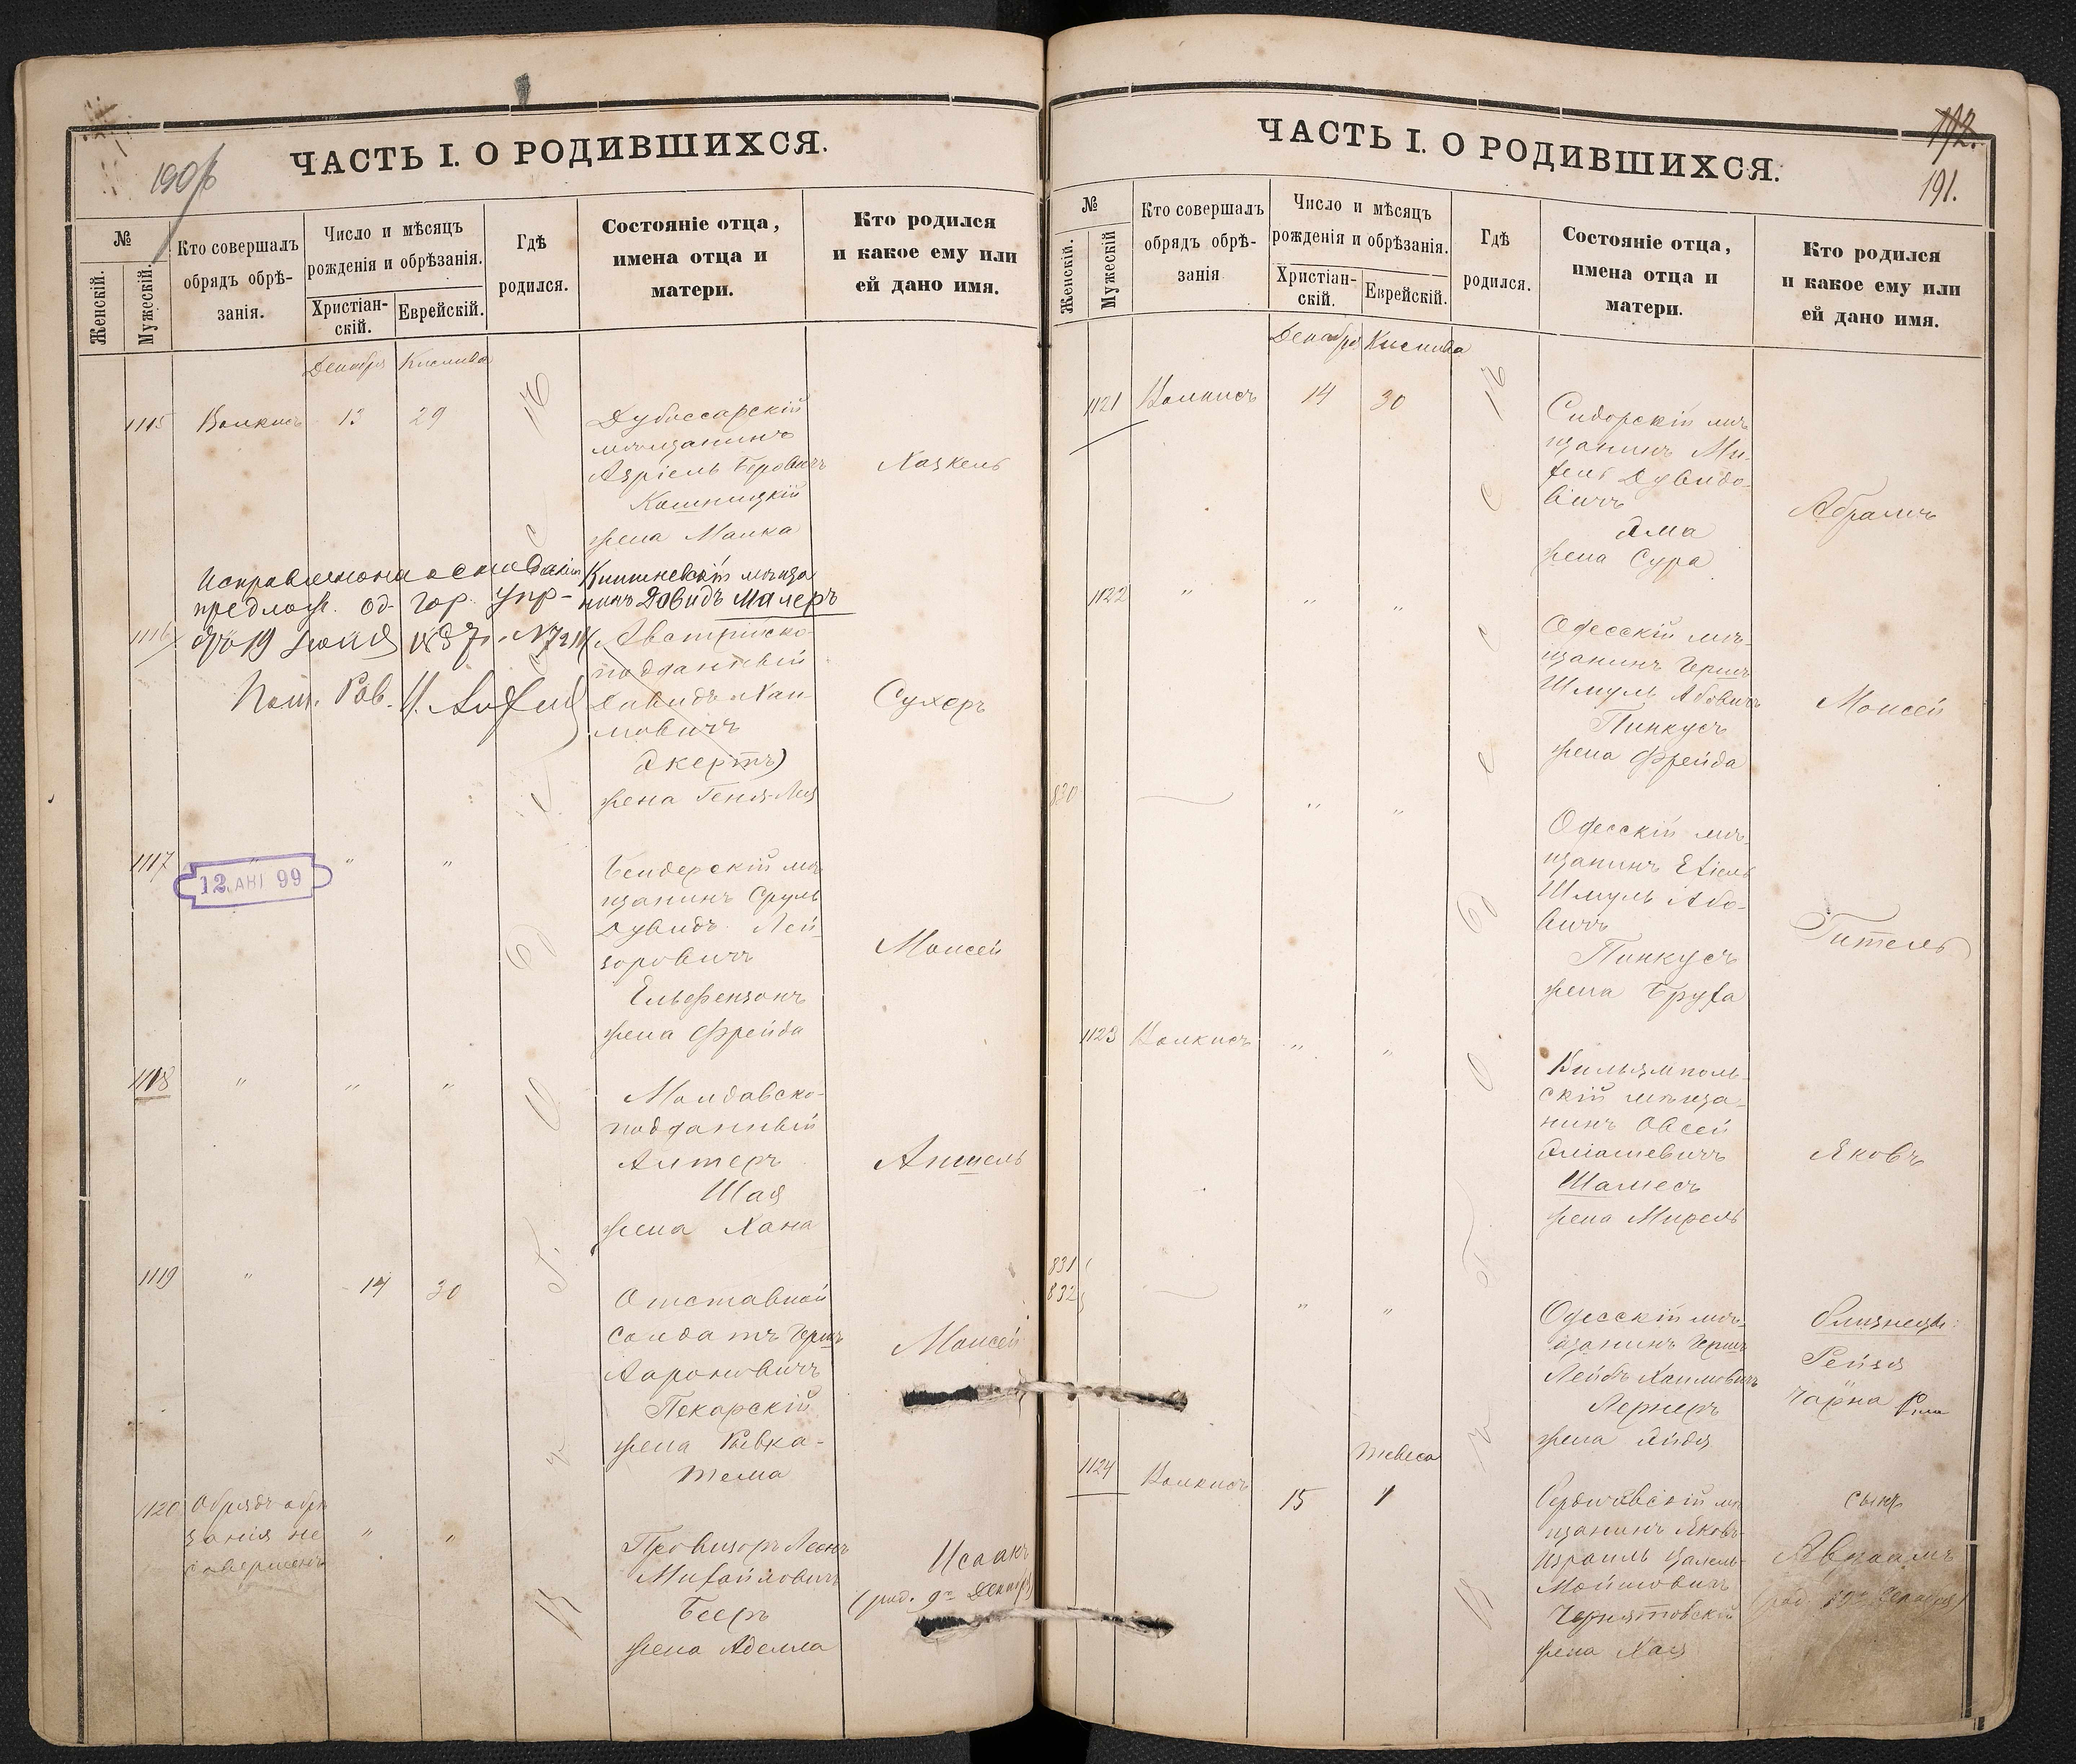 190
ЧАСТЬ I. О РОДИВШИХСЯ.
№
Женскій.
Мужескій.
Кто совершалъ
обрядъ обрѣ-
занія.
Число и мѣсяцъ
рожденія и обрѣзанія.
Христіан-
скій.
Еврейскій.
Гдѣ
родился.
Состояніе отца,
имена отца и
матери.
Кто родился
и какое ему или
ей дано имя.
Декабря Кислива
1115 Волкисъ 13 29
Дубоссарскій
мѣщанинъ
Азріель Беровичъ
Кошницкій
жена Малка
Хаскель
Исправлено на основаніи
предлож. Од. Гор. Упр-
отъ 19 Іюля 1897 г. №
Пом. Рав.
Кишиневскій мѣща
нинъ Давидъ Малеръ
1116
Австрійско-
подданный
Давидъ Хаи-
мовичъ
Экертъ)
жена Геня-Лея
Сухеръ
1117 " " "
12 ЯНІ 99
Бендерскій мѣ
щанинъ Сруль
Дувидъ Лей-
зоровичъ
Ельфензонъ
жена Фрейда
Моисей
1118 " " "
Молдавско-
подданный
Алтеръ
Шая
жена Хана
Аншель
1119 " 14 30
Отставной
солдатъ Гершъ
Аароновичъ
Пекарскій
жена Ривка-
Тема
Моисей
1120 Обрядъ обрѣ
занія не
совершенъ
" "
Провизоръ Леонъ
Михайловичъ
Бееръ
жена Аделла
Исаакъ
(род. 9го Декабря)
172.
191.
ЧАСТЬ I. О РОДИВШИХСЯ.
№
Женскій.
Мужескій
Кто совершалъ
обрядъ обрѣ-
занія
Число и мѣсяцъ
рожденія и обрѣзанія.
Христіан-
скій.
Еврейскій.
Гдѣ
родился.
Состояніе отца,
имена отца и
матери.
Кто родился
и какое ему или
ей дано имя.
Декабря Кислива
1121 Волкисъ 14 30
мѣ
щанинъ Ми-
хель Дувидо-
вичъ
жена Сура
Абрамъ
1122 " " "
Одесскій мѣ-
щанинъ Гершъ
Шмуль Абовичъ
Пинкусъ
жена Фрейда
Моисей
830 " "
Одесскій мѣ-
щанинъ Ехіель
Шмуль Або-
вичъ
Пинкусъ
жена Бруха
Гитель
1123 Волкисъ " "
Вильямполь-
скій мѣща-
нинъ Овсей
Эліашевичъ
Шамесъ
жена Мирель
Яковъ
831
832
" "
Одесскій мѣ-
щанинъ Гершъ
Лейбъ Хаимовичъ
Лернеръ
жена Эйдя
близнецы:
Рейзя
Чарна
Тевеса
1124 Волкисъ 15 1
Бердичевскій мѣ
щанинъ Яковъ-
Израиль
Мойшовичъ
жена Хая
сынъ
Авраамъ